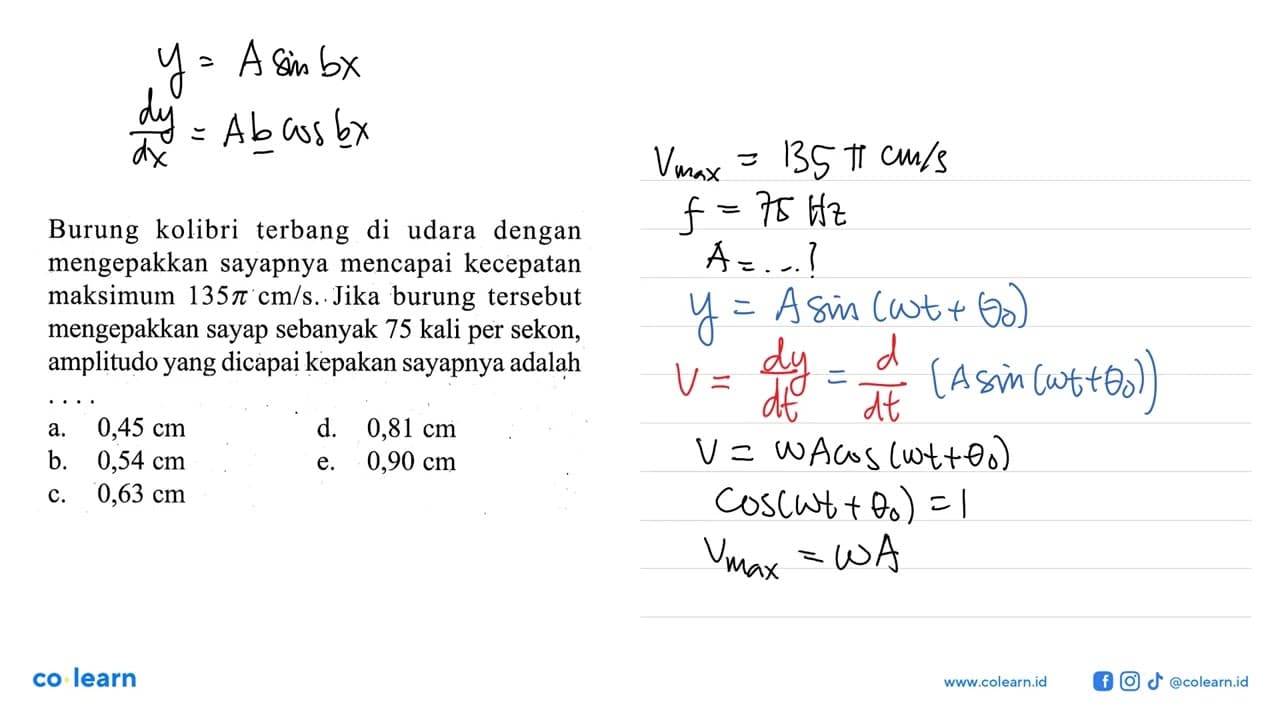 y = A sin bx
dy/dx = Ab cos bx
Burung kolibri terbang di udara dengan
mengepakkan sayapnya mencapai kecepatan
maksimum 135π cm/s. Jika burung tersebut
mengepakkan sayap sebanyak 75 kali per sekon,
amplitudo yang dicapai kepakan sayapnya adalah
. . . .
a. 0,45 cm
b. 0,54 cm
c. 0,63 cm
d. 0,81 cm
e. 0,90 cm
Vmax = 135 π cm/s
f = 75 Hz
A = ... ?
y = A sin (ωt + θ₀)
V = dy/dt = d/dt (A sin (ωt + θ₀))
V = ωA cos (ωt + θ₀)
cos (ωt + θ₀) = 1
Vmax = ωA
co learn
www.colearn.id
@colearn.id